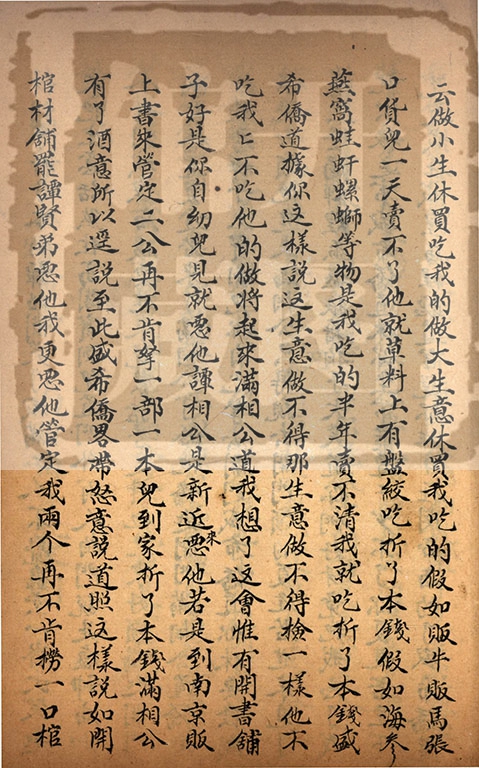 云做小生休買吃我的做大生意休買我吃的假如販牛販馬張
口貨兒一天賣不了他就草料上有盤絞吃折了本錢假如海參
燕窩蛙蚈螺螄等物是我吃的半年賣不清我就吃折了本錢盛
希僑道據你這樣說這生意做不得那生意做不得撿一樣他不
吃我我上不吃他的做將起來滿相公道我想了這會惟有開書舖
子好是你自幼兒見就惡他譚相公是新近來惡他若是到南京販
上書來管定二公再不肯拏一部一本兒到家折了本錢滿相公
有了酒意所以逕說至此盛希僑畧帶怒意說道照這樣說如開
棺材舖罷譚賢弟惡他我更惡他管定我兩个再不肯撈一口棺